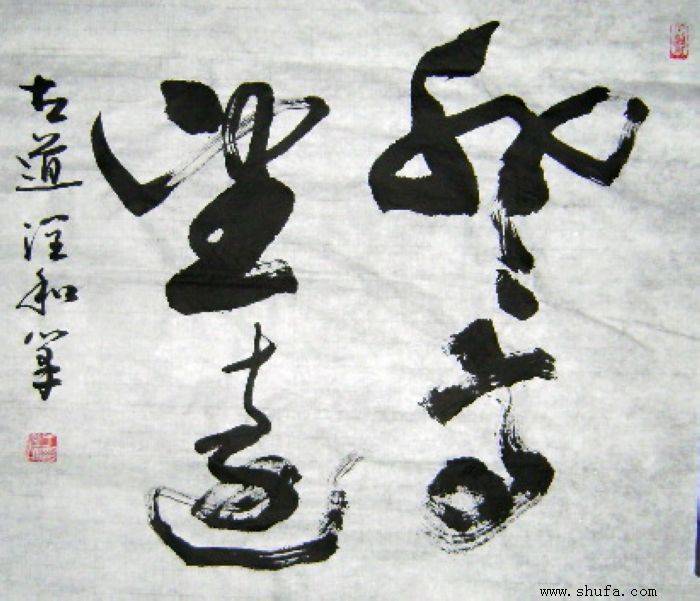 登高
望遠
古道汪和军
www.shufa.com